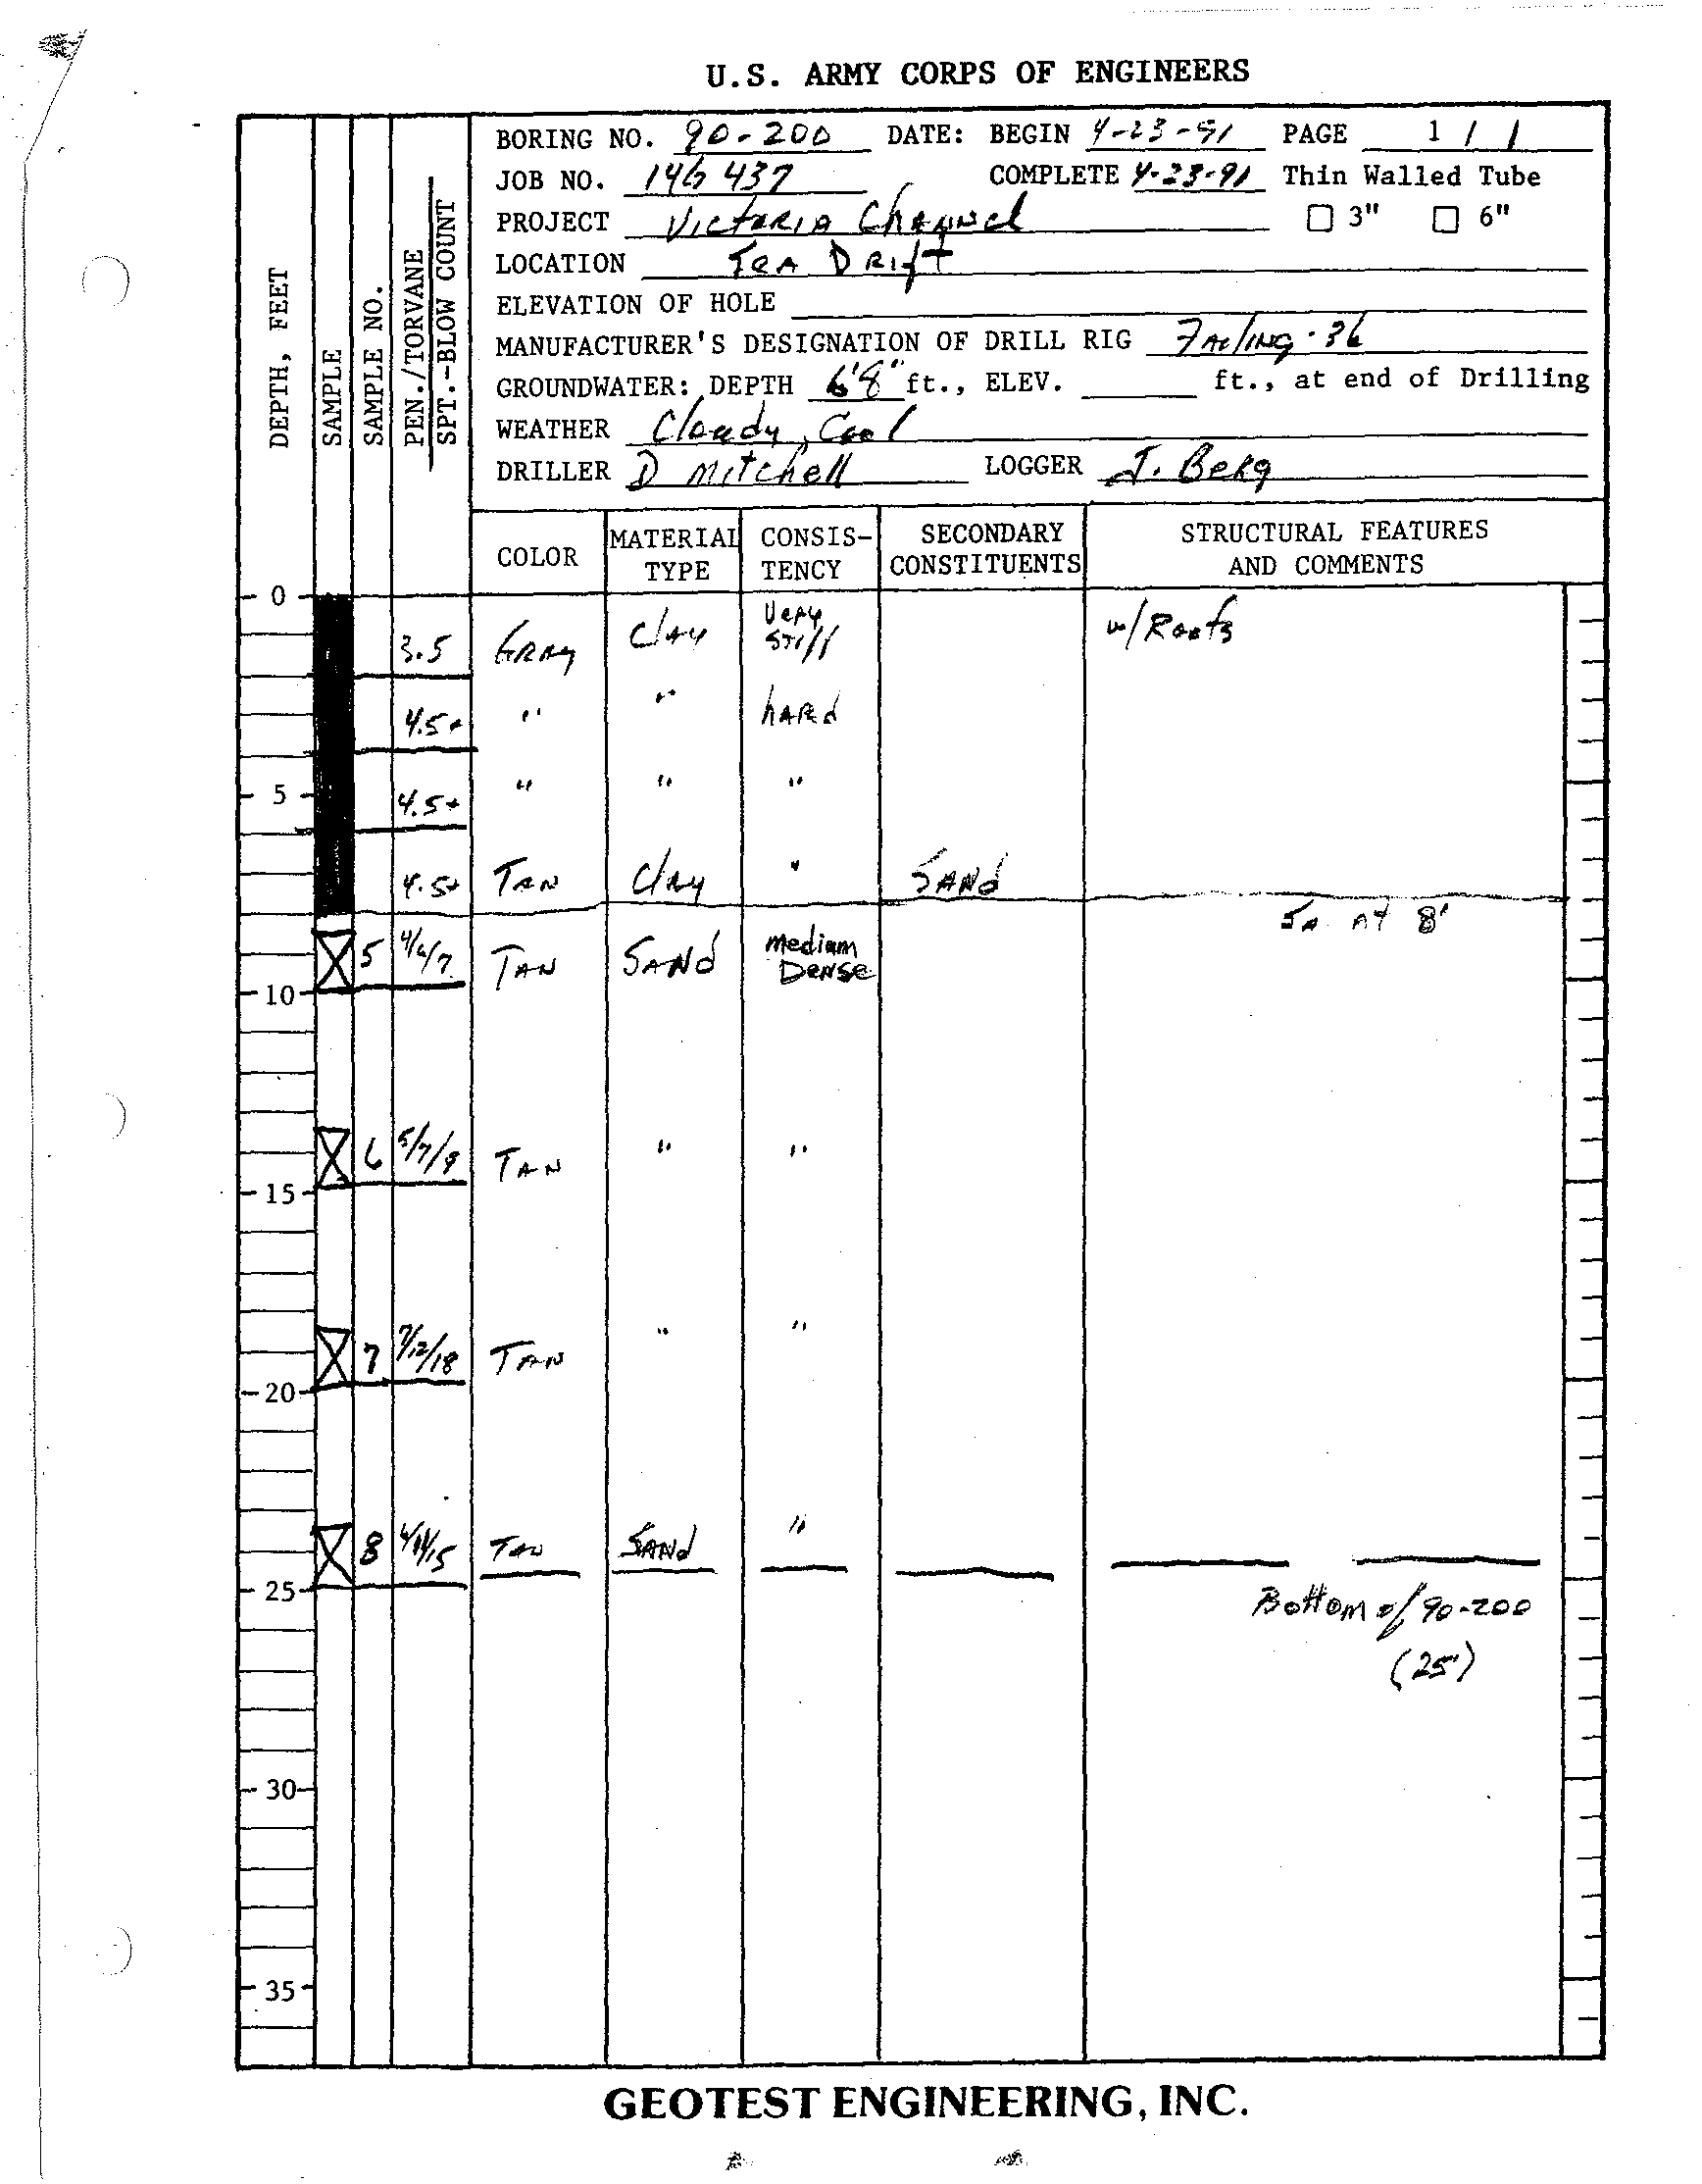 U.S. ARMY CORPS OF ENGINEERS
BORING NO. 90-200 DATE: BEGIN 4-23-91 PAGE 1 / 1
JOB NO. 146 437 COMPLETE 4-23-91 Thin Walled Tube
PROJECT Victoria Channel □ 3" □ 6"
LOCATION Drift
ELEVATION OF HOLE
MANUFACTURER'S DESIGNATION OF DRILL RIG Failing-36
GROUNDWATER: DEPTH 6'8" ft., ELEV. ft., at end of Drilling
WEATHER Cloudy, Cool
DRILLER D Mitchell LOGGER J. Berg
DEPTH, FEET
SAMPLE
SAMPLE NO.
PEN./TORVANE
SPT.-BLOW COUNT
COLOR MATERIAL TYPE CONSIS-TENCY SECONDARY CONSTITUENTS STRUCTURAL FEATURES AND COMMENTS
0
3.5 Gray Clay Very Stiff w/Roots
4.5+ " " hard
5 4.5+ " " "
4.5+ Tan Clay " Sand
Sa. At 8'
5 4/6/7 Tan Sand Medium Dense
10
6 5/7/9 Tan " "
15
7 7/12/18 Tan " "
20
8 /11/15 Tan Sand "
25
Bottom of 90-200
(25')
30
35
GEOTEST ENGINEERING, INC.